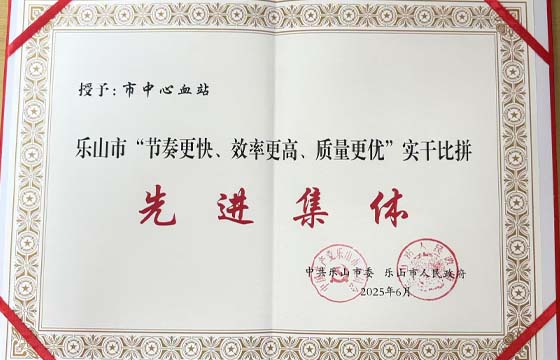 授予：市中心血站
乐山市“节奏更快、效率更高、质量更优”实干比拼
先进集体
中共乐山市委 乐山市人民政府
2025年6月